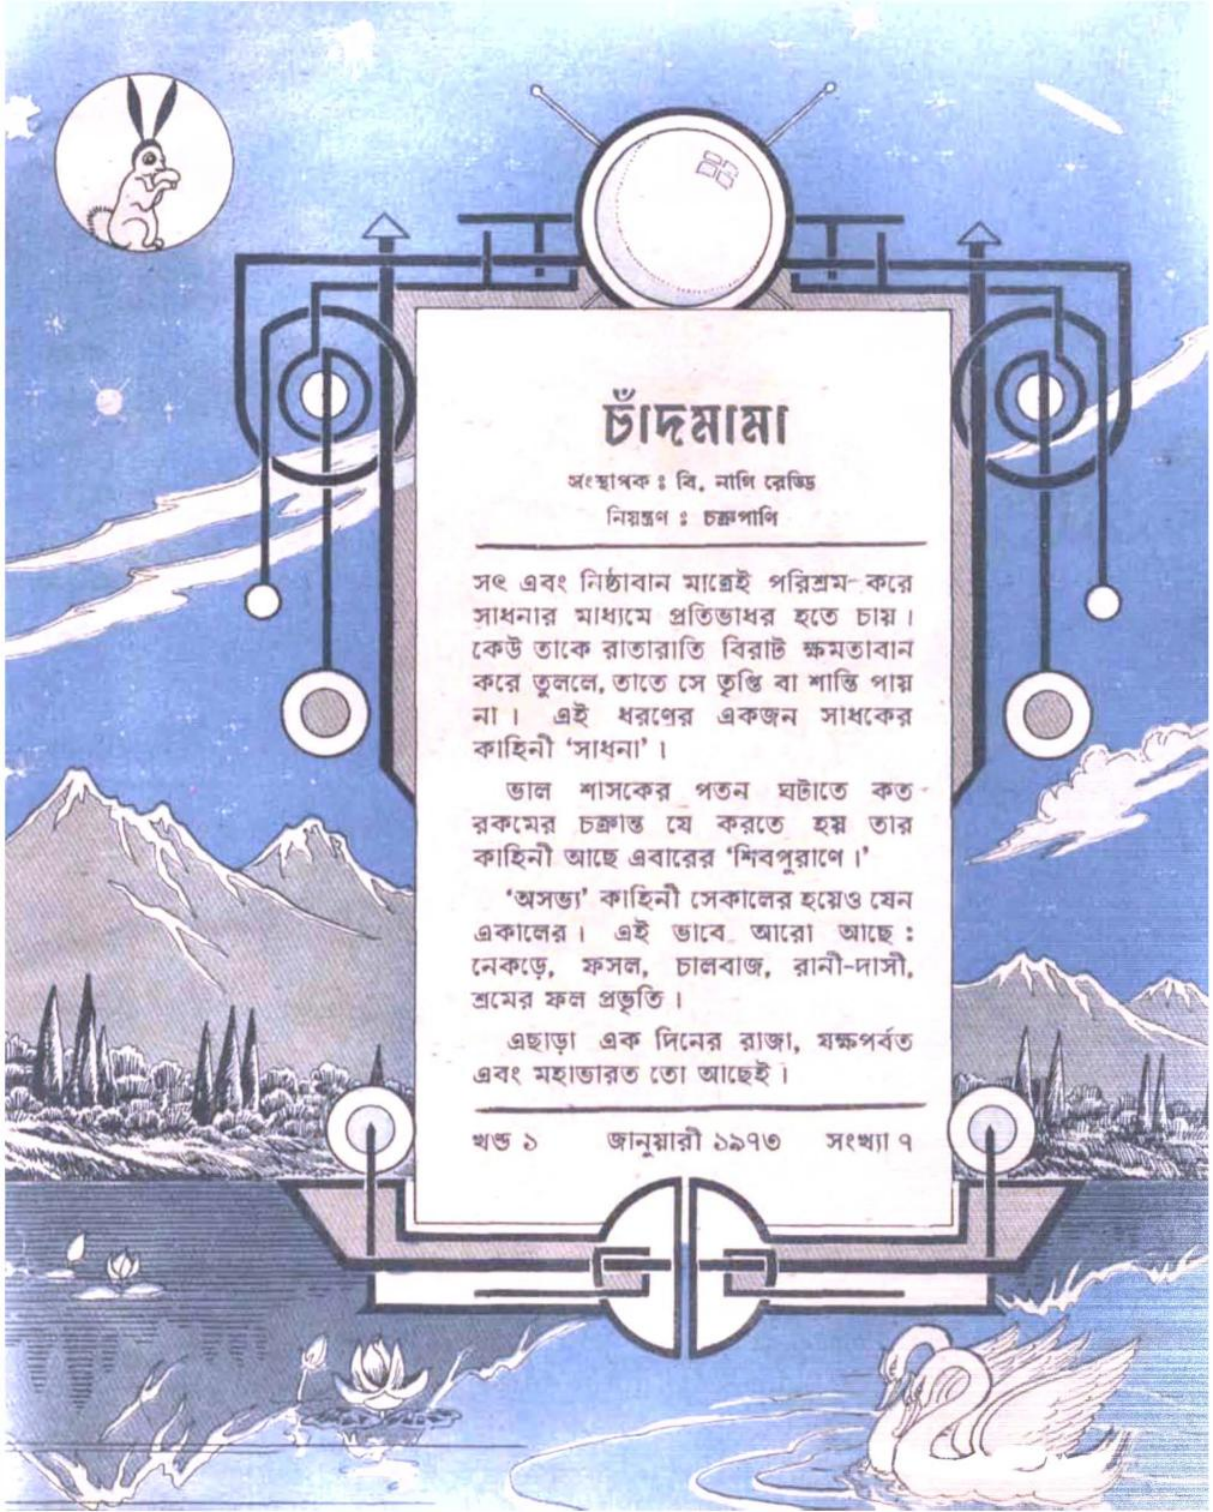 চাঁদমামা
সংস্থাপক : বি. নাগি রেড্ডি
নিয়ন্ত্রণ : চক্রপাণি
সৎ এবং নিষ্ঠাবান মাত্রেই পরিশ্রম করে
সাধনার মাধ্যমে প্রতিভাধর হতে চায়।
কেউ তাকে রাতারাতি বিরাট ক্ষমতাবান
করে তুললে, তাতে সে তৃপ্তি বা শান্তি পায়
না। এই ধরণের একজন সাধকের
কাহিনী ‘সাধনা’।
ভাল শাসকের পতন ঘটাতে কত
রকমের চক্রান্ত যে করতে হয় তার
কাহিনী আছে এবারের ‘শিবপুরাণে।’
‘অসভ্য’ কাহিনী সেকালের হয়েও যেন
একালের। এই ভাবে আরো আছে :
নেকড়ে, ফসল, চালবাজ, রানী-দাসী,
শ্রমের ফল প্রভৃতি।
এছাড়া এক দিনের রাজা, যক্ষপর্বত
এবং মহাভারত তো আছেই।
খন্ড ১ জানুয়ারী ১৯৭৩ সংখ্যা ৭